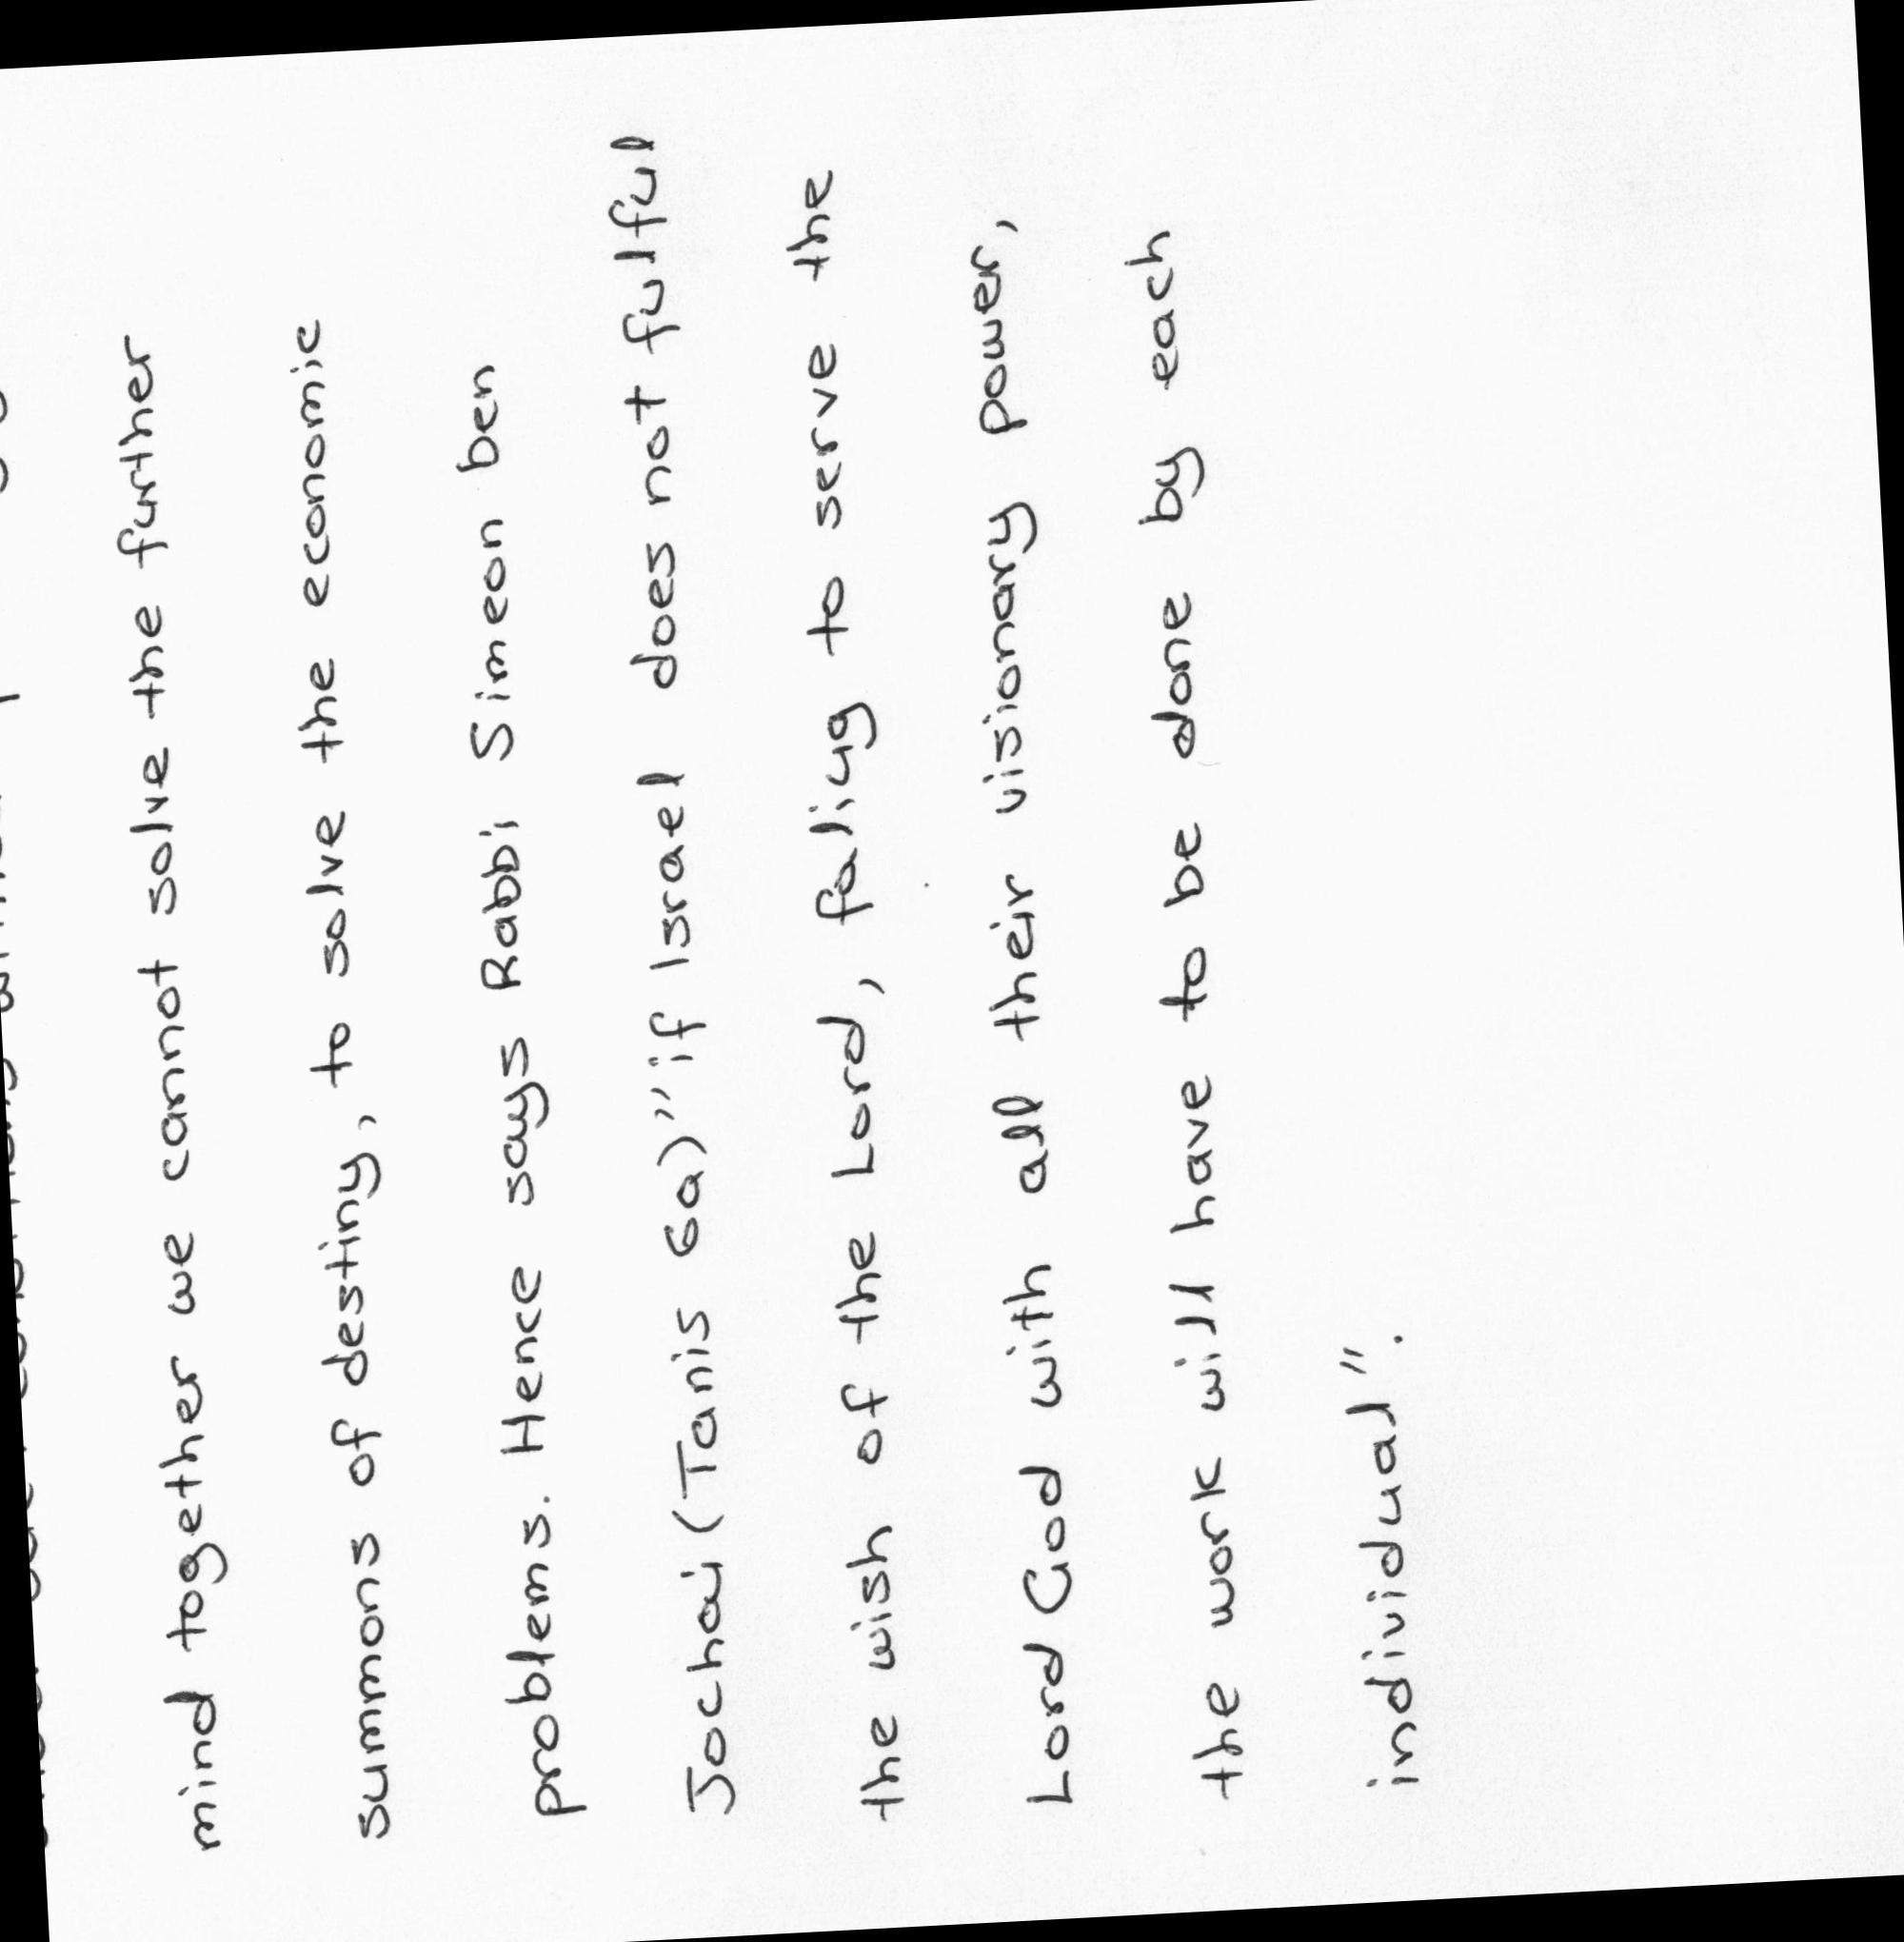 mind together we cannot solve the further
summons of destiny, to solve the economic
problems. Hence says Rabbi Simeon ben
Jochai (Tanis 6a)" if Israel does not fulful
the wish of the Lord, faliug to serve the
Lord God with all their visionary power,
the work will have to be done by each
individual".